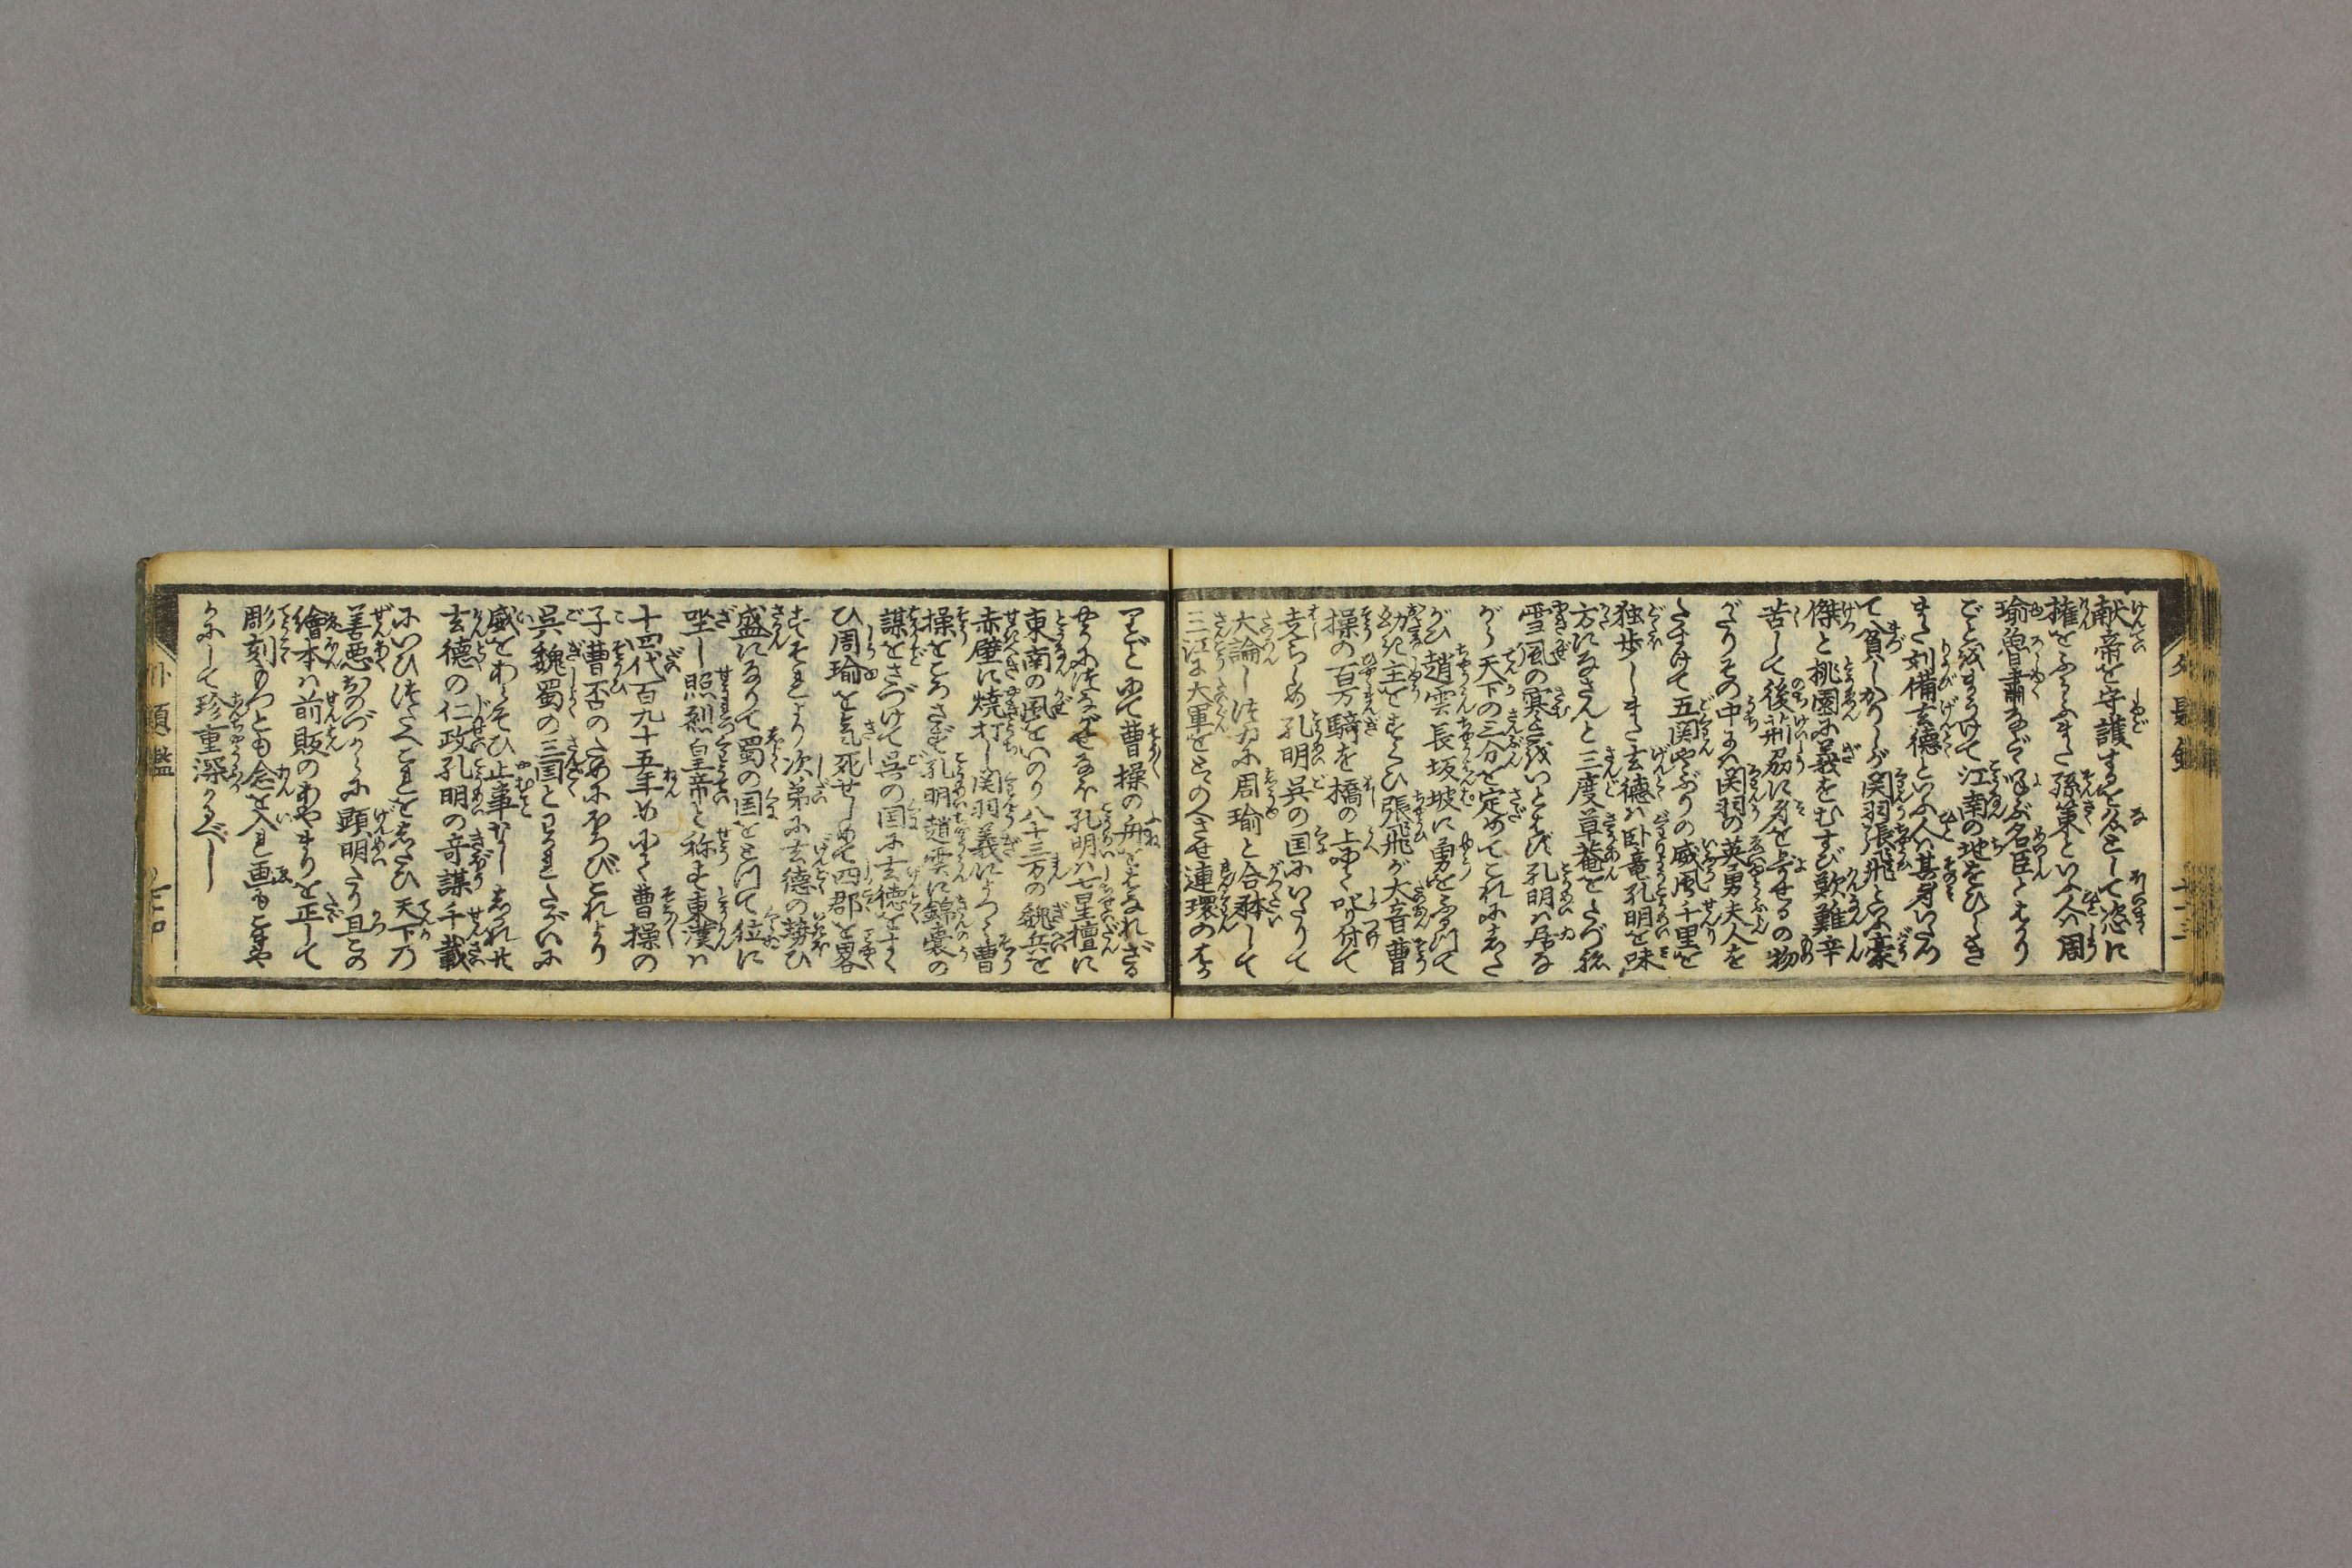 献帝を守護するを名として恣に
権をふるふまた孫策といふ人ハ周
瑜魯肅なんど呼ぶ名臣とはかり
ごとをまうけて江南の地をひらき
また刘備玄徳といふ人ハ其身いたつ
て貧しかりしが関羽張飛といふ豪
傑と桃園に義をむすび艱難辛
苦して後刑罰に身をよせるの物
がたりその中にハ関羽の英勇夫人を
たすけて五関やぶりの威風千里を
独歩しまた玄徳ハ卧竜孔明を味
方になさんと三度草菴をたづね
雪風の寒きをいとはず孔明ハ居な
がら天下の三分を定めてこれにした
がひ趙雲長坂坡に勇をふるつて
幼だ主をすくひ張飛が大音曹
操の百万騎を橋の上にて叱付て
走らしめ孔明呉の国にいたりて
大論しつゐに周瑜と合体して
三江に大軍をとゝのへさせ連環のはか
りごとにて曹操の舟をはなれざる
やうにつながせなほ孔明ハ七星檀に
東南の風をいのり八十三万の魏兵を
赤壁に焼打し関羽義によつて曹
操をころさず孔明趙雲に錦嚢の
謀をさづけて呉の国に玄徳をすく
ひ周瑜を気死せしめて四郡を畧
すそれより次第に玄徳の勢ひ
盛になりて蜀の国をとつて位に
坐し照烈皇帝と称す東漢ハ
十四代百九十五年めにて曹操の
子曹丕のためにほろびこれより
呉魏蜀の三国とわかれたがいに
威をあらそひ止事なし
玄徳の仁政孔明の奇謀千載
にいひつたへこれをしたひ天下の
善悪おのづから顕明たり且この
繪本ハ前版のあやまりを正して
彫刻もつとも念を入れ画もこまや
かにして珍重深かるべし